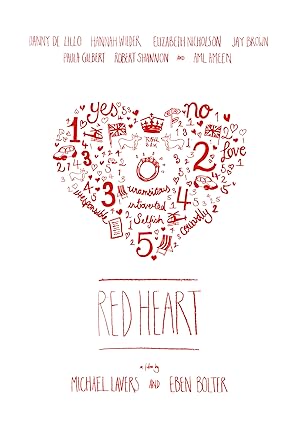 DANNY DE LILLO HANNAH WILDER ELIZABETH NICHOLSON JAY BROWN
PAULA GILBERT ROBERT SHANNON AND AML AMEEN
yes no
1 2
Love
3 3
4 4
irresponsible
unambitious
introverted
Selfish
cowardly
5
RED HEART
a film by
MICHAEL LAVERS AND EBEN BOLTER